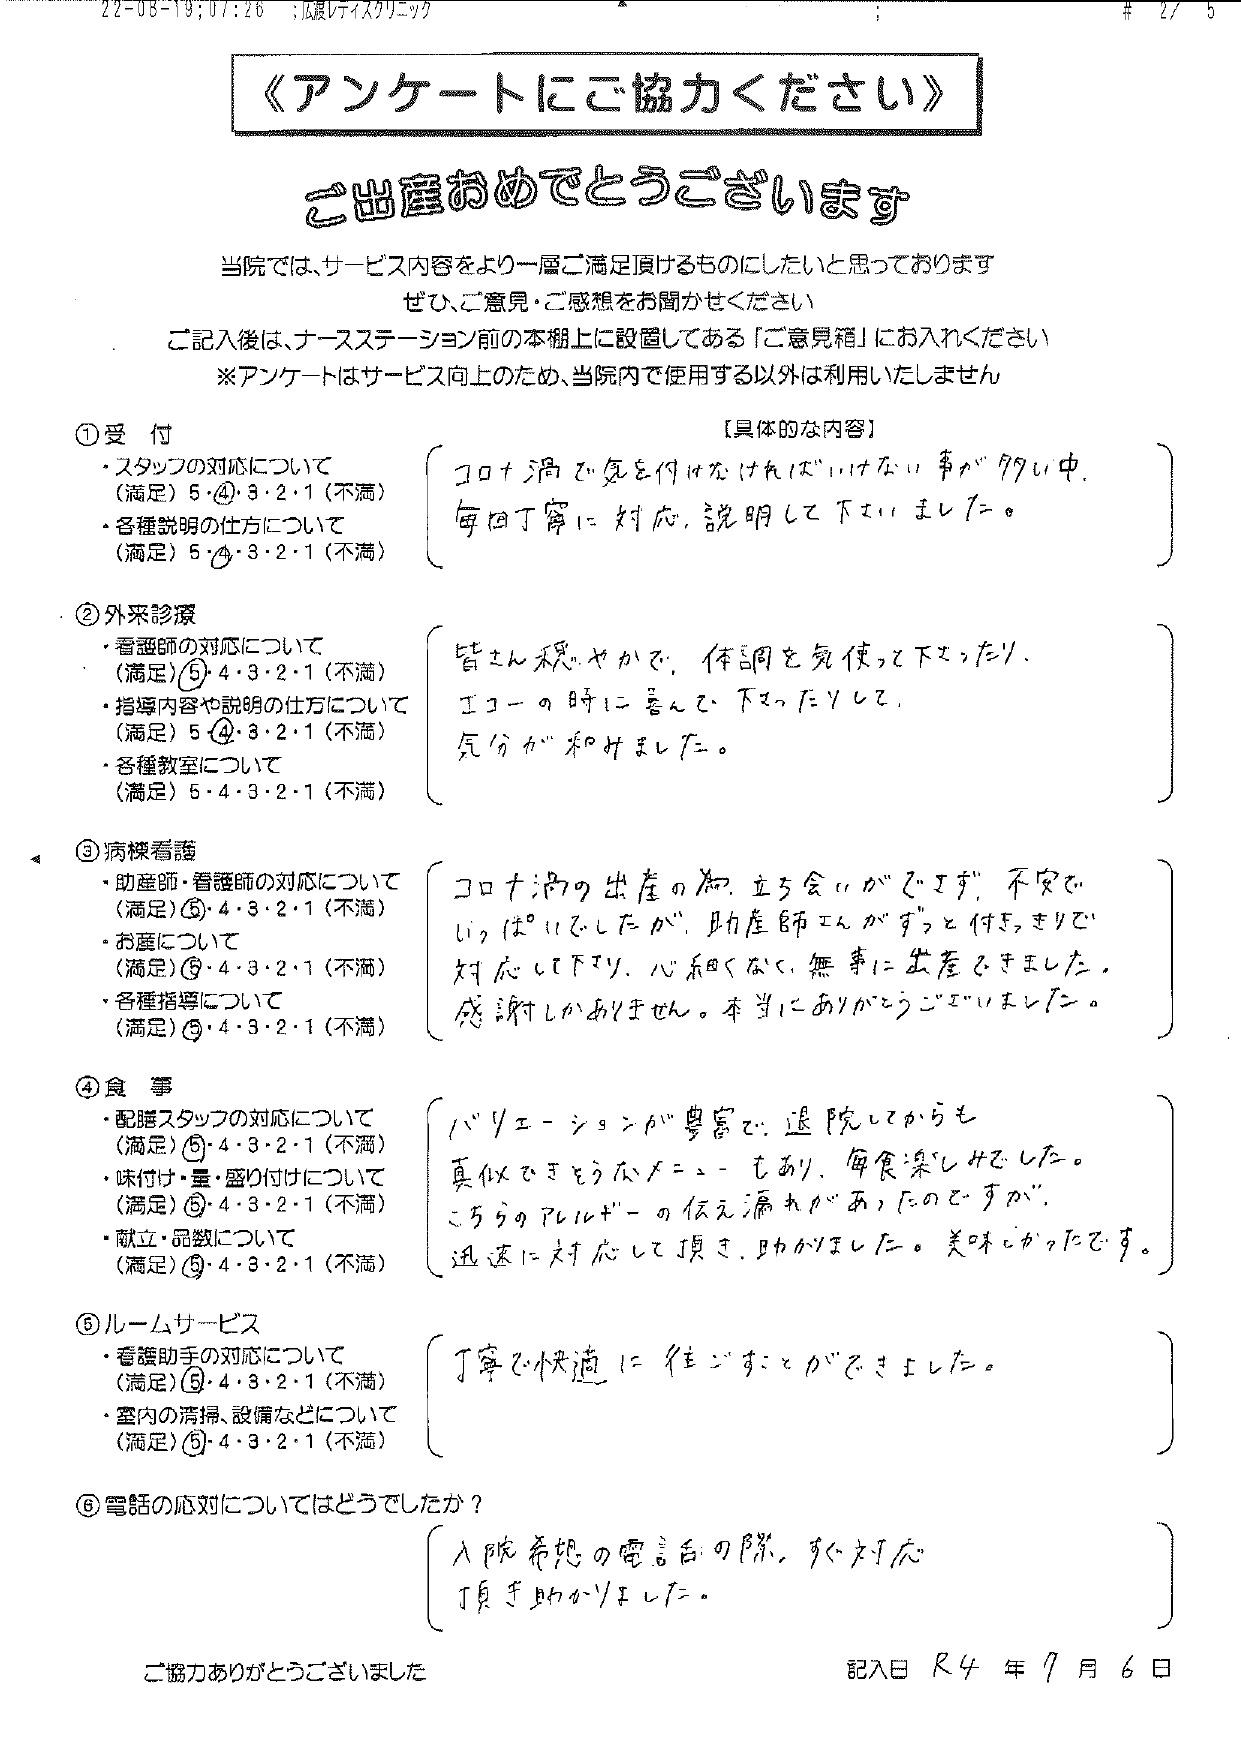 22-08-19;07:26 ;広渡レディスクリニック ; # 2/ 5
《アンケートにご協力ください》
ご出産おめでとうございます
当院では、サービス内容をより一層ご満足頂けるものにしたいと思っております
ぜひ、ご意見・ご感想をお聞かせください
ご記入後は、ナースステーション前の本棚上に設置してある「ご意見箱」にお入れください
※アンケートはサービス向上のため、当院内で使用する以外は利用いたしません
【具体的な内容】
①受 付
・スタッフの対応について
(満足) 5・④・3・2・1 (不満)
・各種説明の仕方について
(満足) 5・④・3・2・1 (不満)
コロナ渦で気を付けなければいけない事が多い中、
毎回丁寧に対応、説明して下さいました。
②外来診療
・看護師の対応について
(満足) ⑤・4・3・2・1 (不満)
・指導内容や説明の仕方について
(満足) 5・④・3・2・1 (不満)
・各種教室について
(満足) 5・4・3・2・1 (不満)
皆さん穏やかで、体調を気使って下さったり、
エコーの時に喜んで下さったりして、
気分が和みました。
③病棟看護
・助産師・看護師の対応について
(満足) ⑤・4・3・2・1 (不満)
・お産について
(満足) ⑤・4・3・2・1 (不満)
・各種指導について
(満足) ⑤・4・3・2・1 (不満)
コロナ渦の出産の為、立ち会いができず、不安で
いっぱいでしたが、助産師さんがずっと付きっきりで
対応して下さり、心細くなく、無事に出産できました。
感謝しかありません。本当にありがとうございました。
④食 事
・配膳スタッフの対応について
(満足) ⑤・4・3・2・1 (不満)
・味付け・量・盛り付けについて
(満足) ⑤・4・3・2・1 (不満)
・献立・品数について
(満足) ⑤・4・3・2・1 (不満)
バリエーションが豊富で、退院してからも
真似できそうなメニューもあり、毎食楽しみでした。
こちらのアレルギーの伝え漏れがあったのですが、
迅速に対応して頂き、助かりました。美味しかったです。
⑤ルームサービス
・看護助手の対応について
(満足) ⑤・4・3・2・1 (不満)
・室内の清掃、設備などについて
(満足) ⑤・4・3・2・1 (不満)
丁寧で快適に過ごすことができました。
⑥電話の応対についてはどうでしたか？
入院希望の電話の際、すぐ対応
頂き助かりました。
ご協力ありがとうございました
記入日 R4 年 7 月 6 日